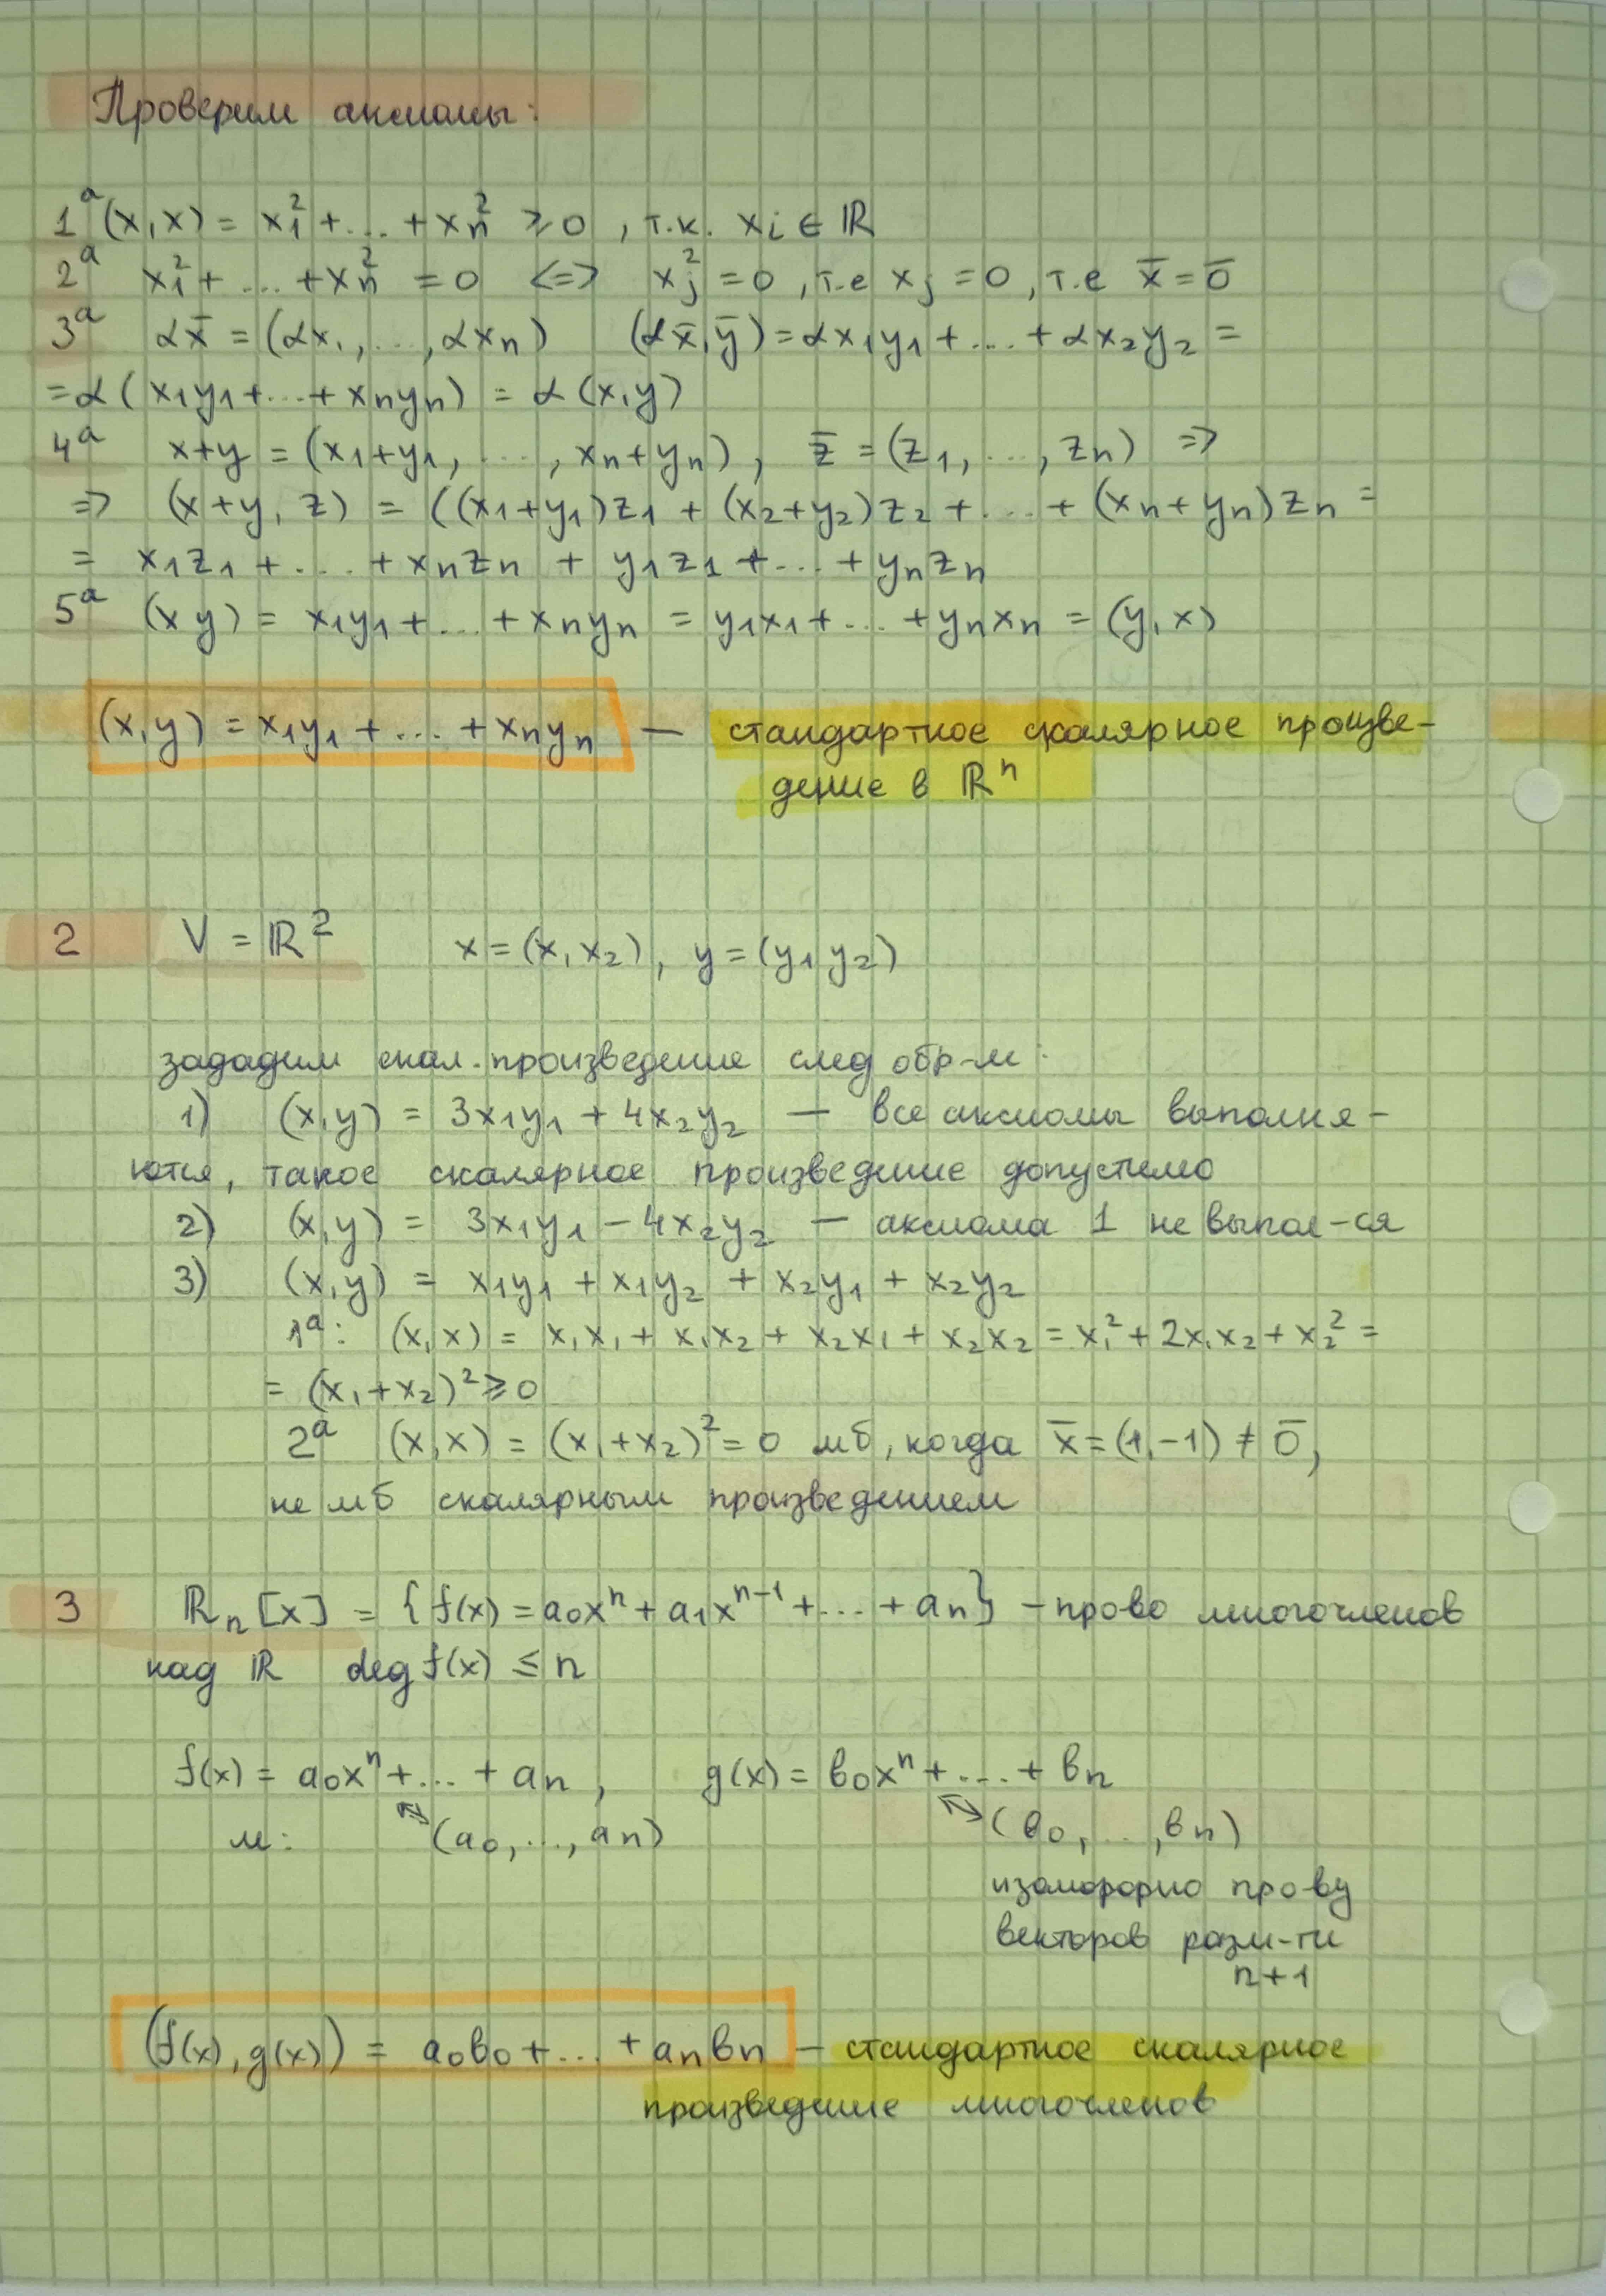 Проверим аксиомы:
1ᵃ (x,x) = x₁² + ... + xₙ² ⩾ 0 , т.к. xᵢ ∈ ℝ
2ᵃ x₁² + ... + xₙ² = 0 <=> xⱼ² = 0 , т.е xⱼ = 0 , т.е x̄ = 0̄
3ᵃ αx̄ = (αx₁, ..., αxₙ) (αx̄,ȳ) = αx₁y₁ + ... + αx₂y₂ =
= α (x₁y₁ + ... + xₙyₙ) = α (x,y)
4ᵃ x+y = (x₁+y₁, ..., xₙ+yₙ), z̄ = (z₁, ..., zₙ) =>
=> (x+y, z) = ((x₁+y₁)z₁ + (x₂+y₂)z₂ + ... + (xₙ+yₙ)zₙ =
= x₁z₁ + ... + xₙzₙ + y₁z₁ + ... + yₙzₙ
5ᵃ (x y) = x₁y₁ + ... + xₙyₙ = y₁x₁ + ... + yₙxₙ = (y,x)
(x,y) = x₁y₁ + ... + xₙyₙ — стандартное скалярное произве-
дение в ℝⁿ
2 V = ℝ² x = (x₁ x₂), y = (y₁ y₂)
зададим скал. произведение след обр-м:
1) (x,y) = 3x₁y₁ + 4x₂y₂ — все аксиомы выполня-
ются, такое скалярное произведение допустимо
2) (x,y) = 3x₁y₁ - 4x₂y₂ — аксиома 1 не выпол-ся
3) (x,y) = x₁y₁ + x₁y₂ + x₂y₁ + x₂y₂
1ᵃ: (x,x) = x₁x₁ + x₁x₂ + x₂x₁ + x₂x₂ = x₁² + 2x₁x₂ + x₂² =
= (x₁+x₂)² ⩾ 0
2ᵃ (x,x) = (x₁+x₂)² = 0 мб, когда x̄ = (1,-1) ≠ 0̄,
не мб скалярным произведением
3 ℝₙ[x] = {f(x) = a₀xⁿ + a₁xⁿ⁻¹ + ... + aₙ} - прово многочленов
над ℝ deg f(x) ≤ n
f(x) = a₀xⁿ + ... + aₙ, g(x) = b₀xⁿ + ... + bₙ
м: ↔ (a₀, ..., aₙ) ↔ (b₀, ..., bₙ)
изоморфно про-ву
векторов разм-ти
n+1
(f(x), g(x)) = a₀b₀ + ... + aₙbₙ — стандартное скалярное
произведение многочленов